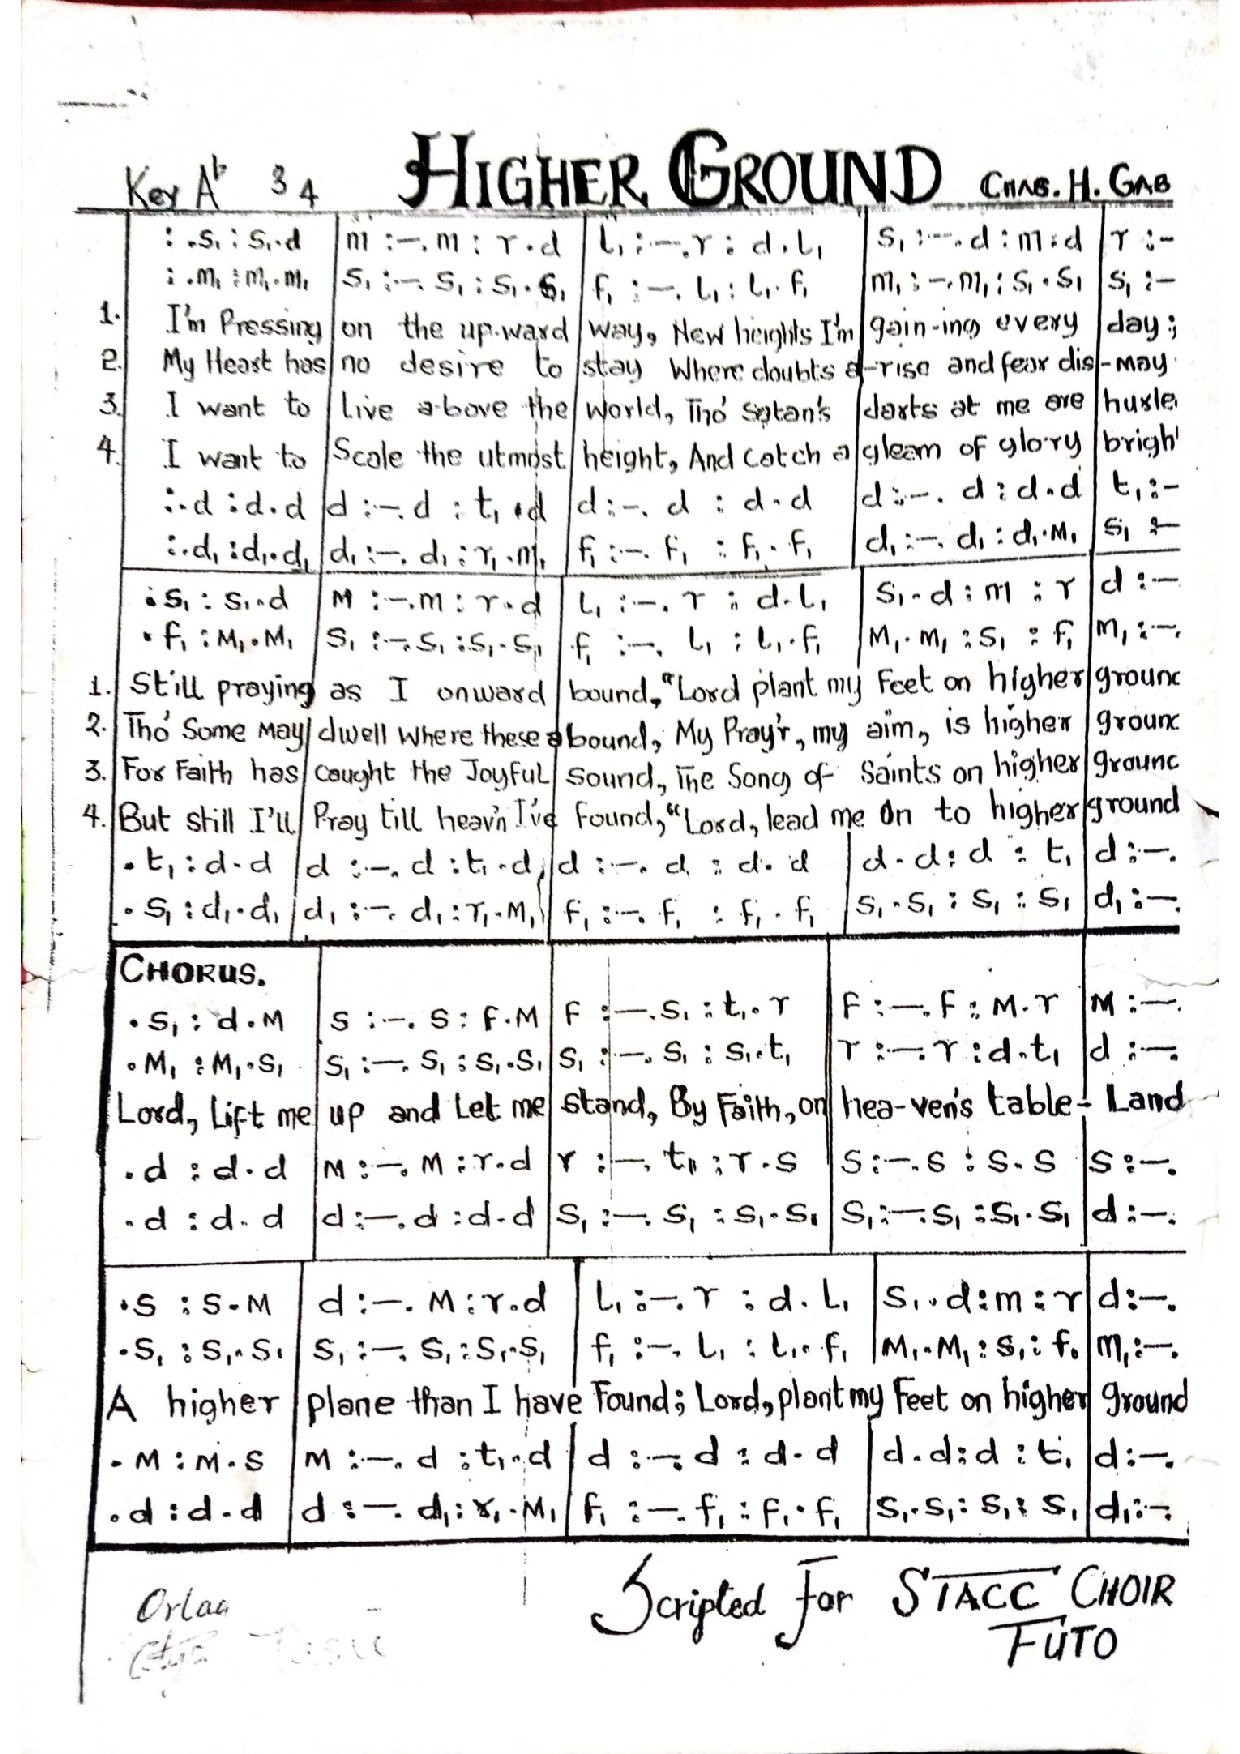 Key A♭ 3 4 HIGHER GROUND CHAS. H. GAB
: .s₁ : s₁.d | m :–. m : r.d | l₁ :–. r : d.l₁ | s₁ :–. d : m.d | r :–
: .m₁ : m₁.m₁ | s₁ :–. s₁ : s₁.s₁ | f₁ :–. l₁ : l₁.f₁ | m₁ :–. m₁ : s₁.s₁ | s₁ :–
1. I'm Pressing on the up-ward way, New heights I'm gain-ing every day;
2. My Heart has no desire to stay Where doubts a-rise and fear dis-may
3. I want to live a-bove the World, Tho' Satan's darts at me are hurle
4. I want to Scale the utmost height, And Catch a gleam of glo-ry brigh
: .d : d.d | d :–. d : t₁.d | d :–. d : d.d | d :–. d : d.d | t₁ :–
: .d₁ : d₁.d₁ | d₁ :–. d₁ : r₁.m₁ | f₁ :–. f₁ : f₁.f₁ | d₁ :–. d₁ : d₁.M₁ | s₁ :–
.s₁ : s₁.d | M :–. m : r.d | l₁ :–. r : d.l₁ | s₁.d : m : r | d :–
.f₁ : M₁.M₁ | s₁ :–. s₁ : s₁.s₁ | f₁ :–. l₁ : l₁.f₁ | M₁.m₁ : s₁ : f₁ | m₁ :–.
1. Still praying as I onward bound, "Lord plant my Feet on higher grounc
2. Tho' Some May dwell where these abound, My Pray'r, my aim, is higher grounc
3. For Faith has caught the Joyful sound, The Song of Saints on higher grounc
4. But still I'll Pray till heav'n I've Found, "Lord, lead me On to higher ground
.t₁ : d.d | d :–. d : t₁.d | d :–. d : d.d | d.d : d : t₁ | d :–.
.s₁ : d₁.d₁ | d₁ :–. d₁ : r₁.M₁ | f₁ :–. f₁ : f₁.f₁ | s₁.s₁ : s₁ : s₁ | d₁ :–.
CHORUS.
.s₁ : d.M | s :–. s : f.M | f :–. s₁ : t₁.r | f :–. f : M.r | M :–.
.M₁ : M₁.s₁ | s₁ :–. s₁ : s₁.s₁ | s₁ :–. s₁ : s₁.t₁ | r :–. r : d.t₁ | d :–.
Lord, Lift me up and Let me stand, By Faith, on hea-ven's table- Land
.d : d.d | M :–. M : r.d | r :–. t₁ : r.s | s :–. s : s.s | s :–.
.d : d.d | d :–. d : d.d | s₁ :–. s₁ : s₁.s₁ | s₁ :–: s₁ : s₁.s₁ | d :–.
.s : s.M | d :–. M : r.d | l₁ :–. r : d.l₁ | s₁.d : m : r | d :–.
.s₁ : s₁.s₁ | s₁ :–. s₁ : s₁.s₁ | f₁ :–. l₁ : l₁.f₁ | M₁.M₁ : s₁ : f. | m₁ :–.
A higher plane than I have Found; Lord, plant my Feet on higher ground
.M : M.s | m :–. d : t₁.d | d :–. d : d.d | d.d : d : t₁ | d :–.
.d : d.d | d :–. d₁ : r₁.M₁ | f₁ :–. f₁ : f₁.f₁ | s₁.s₁ : s₁ : s₁ | d₁ :–.
Scripted For STACC CHOIR
FUTO